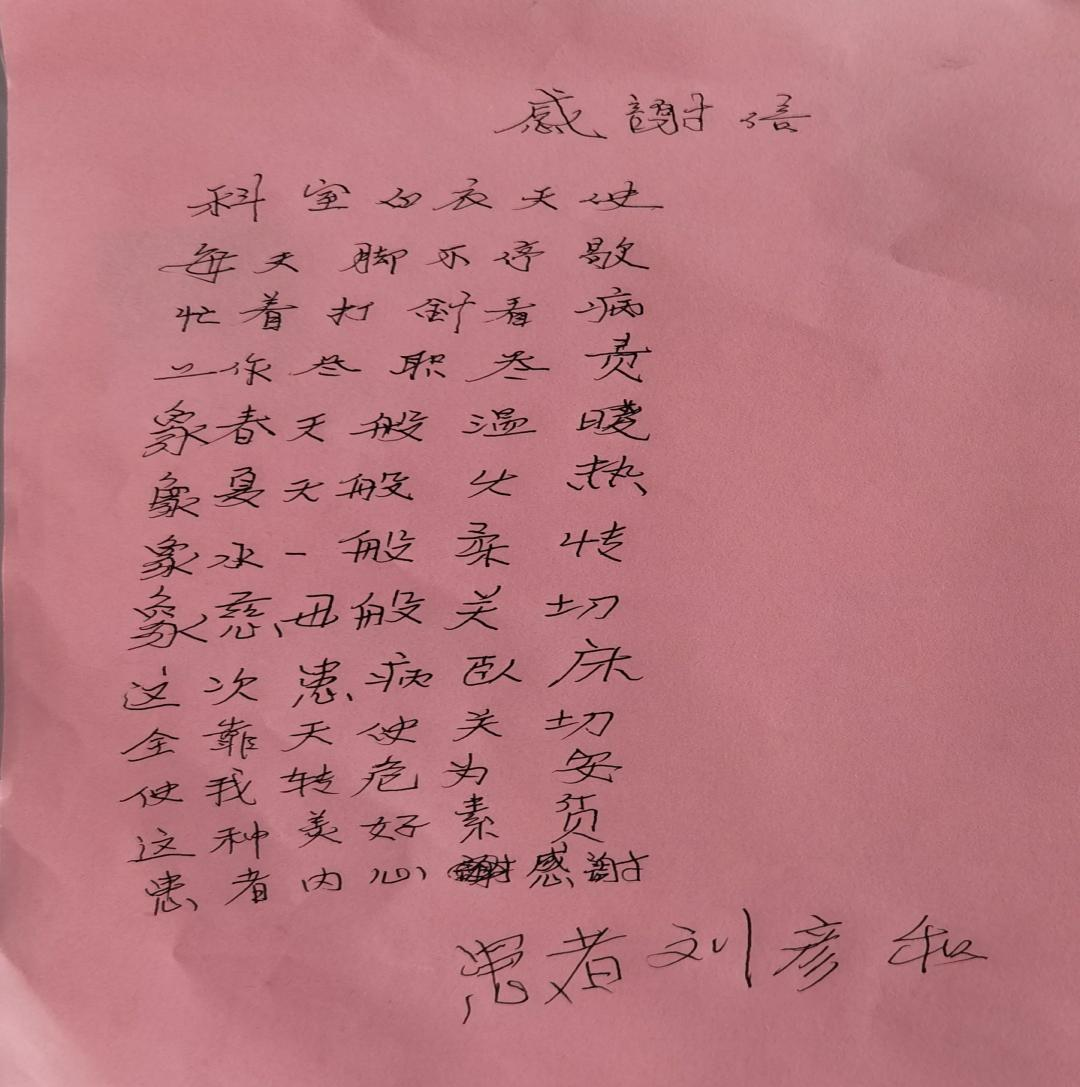 感謝信
科室白衣天使
每天脚不停歇
忙着打針看病
工作尽职尽责
象春天般温暖
象夏天般火热
象水一般柔情
象慈母般关切
这次患病臥床
全靠天使关切
使我转危为安
这种美好素质
患者内心感謝
患者刘彦和